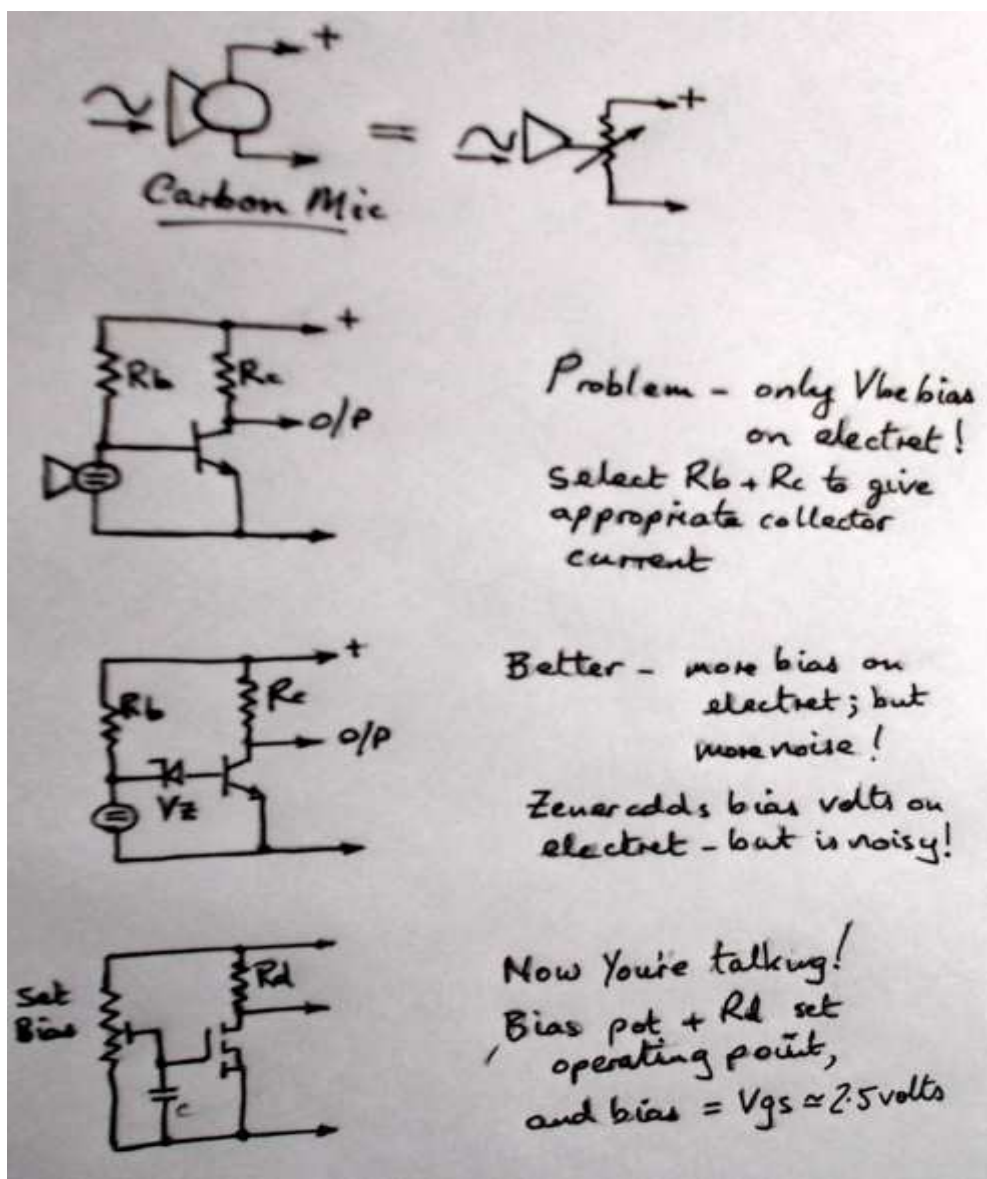 +
+
=
Carbon Mic
+
Rb
Rc
O/P
Problem - only Vbe bias
on electret!
Select Rb + Rc to give
appropriate collector
current
+
Rb
Rc
O/P
Vz
Better - more bias on
electret; but
more noise!
Zener adds bias volts on
electret - but is noisy!
Set
Bias
Rd
c
Now You're talking!
Bias pot + Rd set
operating point,
and bias = Vgs ≃ 2.5 volts